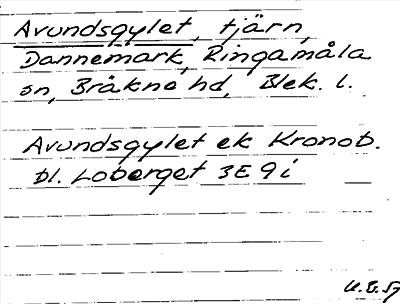 Avundsgylet, tjärn,
Dannemark, Ringamåla
sn, Bräkne hd, Blek. l.
Avundsgylet ek Kronob.
bl. Loberget 3E 9i